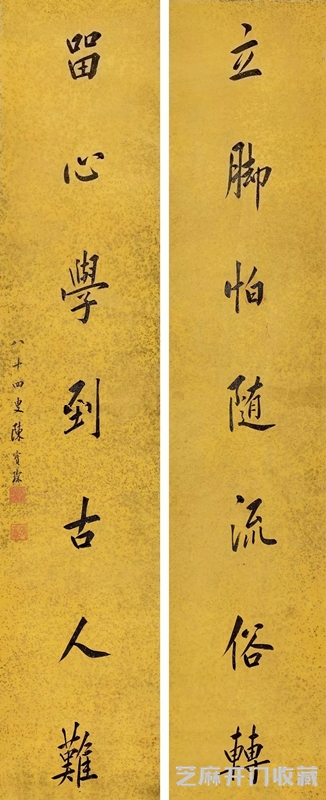 立脚怕随流俗轉
畱心學到古人難
八十四叟陳寶琛
芝麻开门收藏